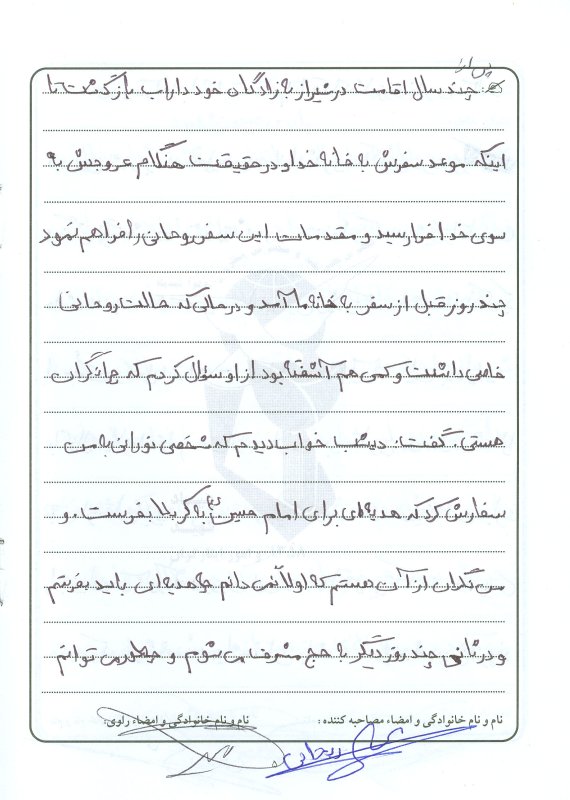 پس از
چند سال اقامت در شیراز به زادگاه خود داراب بازگشت تا
اینکه موعد سفرش به خانه خدا و در حقیقت هنگام عروجش به
سوی خدا فرا رسید و مقدمات این سفر روحانی را فراهم نمود
چند روز قبل از سفر به خانه ما آمد و در حالی که حالت روحانی
خاصی داشت و کمی هم آشفته بود از او سؤال کردم که چرا نگران
هستی. گفت: دیشب خواب دیدم که شخصی نورانی به من
سفارش کرد که هدیه‌ای برای امام حسین (ع) به کربلا بفرست. و
من نگران از آن هستم که اولاً نمی دانم چه هدیه‌ای باید بفرستم
و در ثانی چند روز دیگر به حج مشرف می شوم و چطور می توانم
نام و نام خانوادگی و امضاء مصاحبه کننده : نام و نام خانوادگی و امضاء راوی: